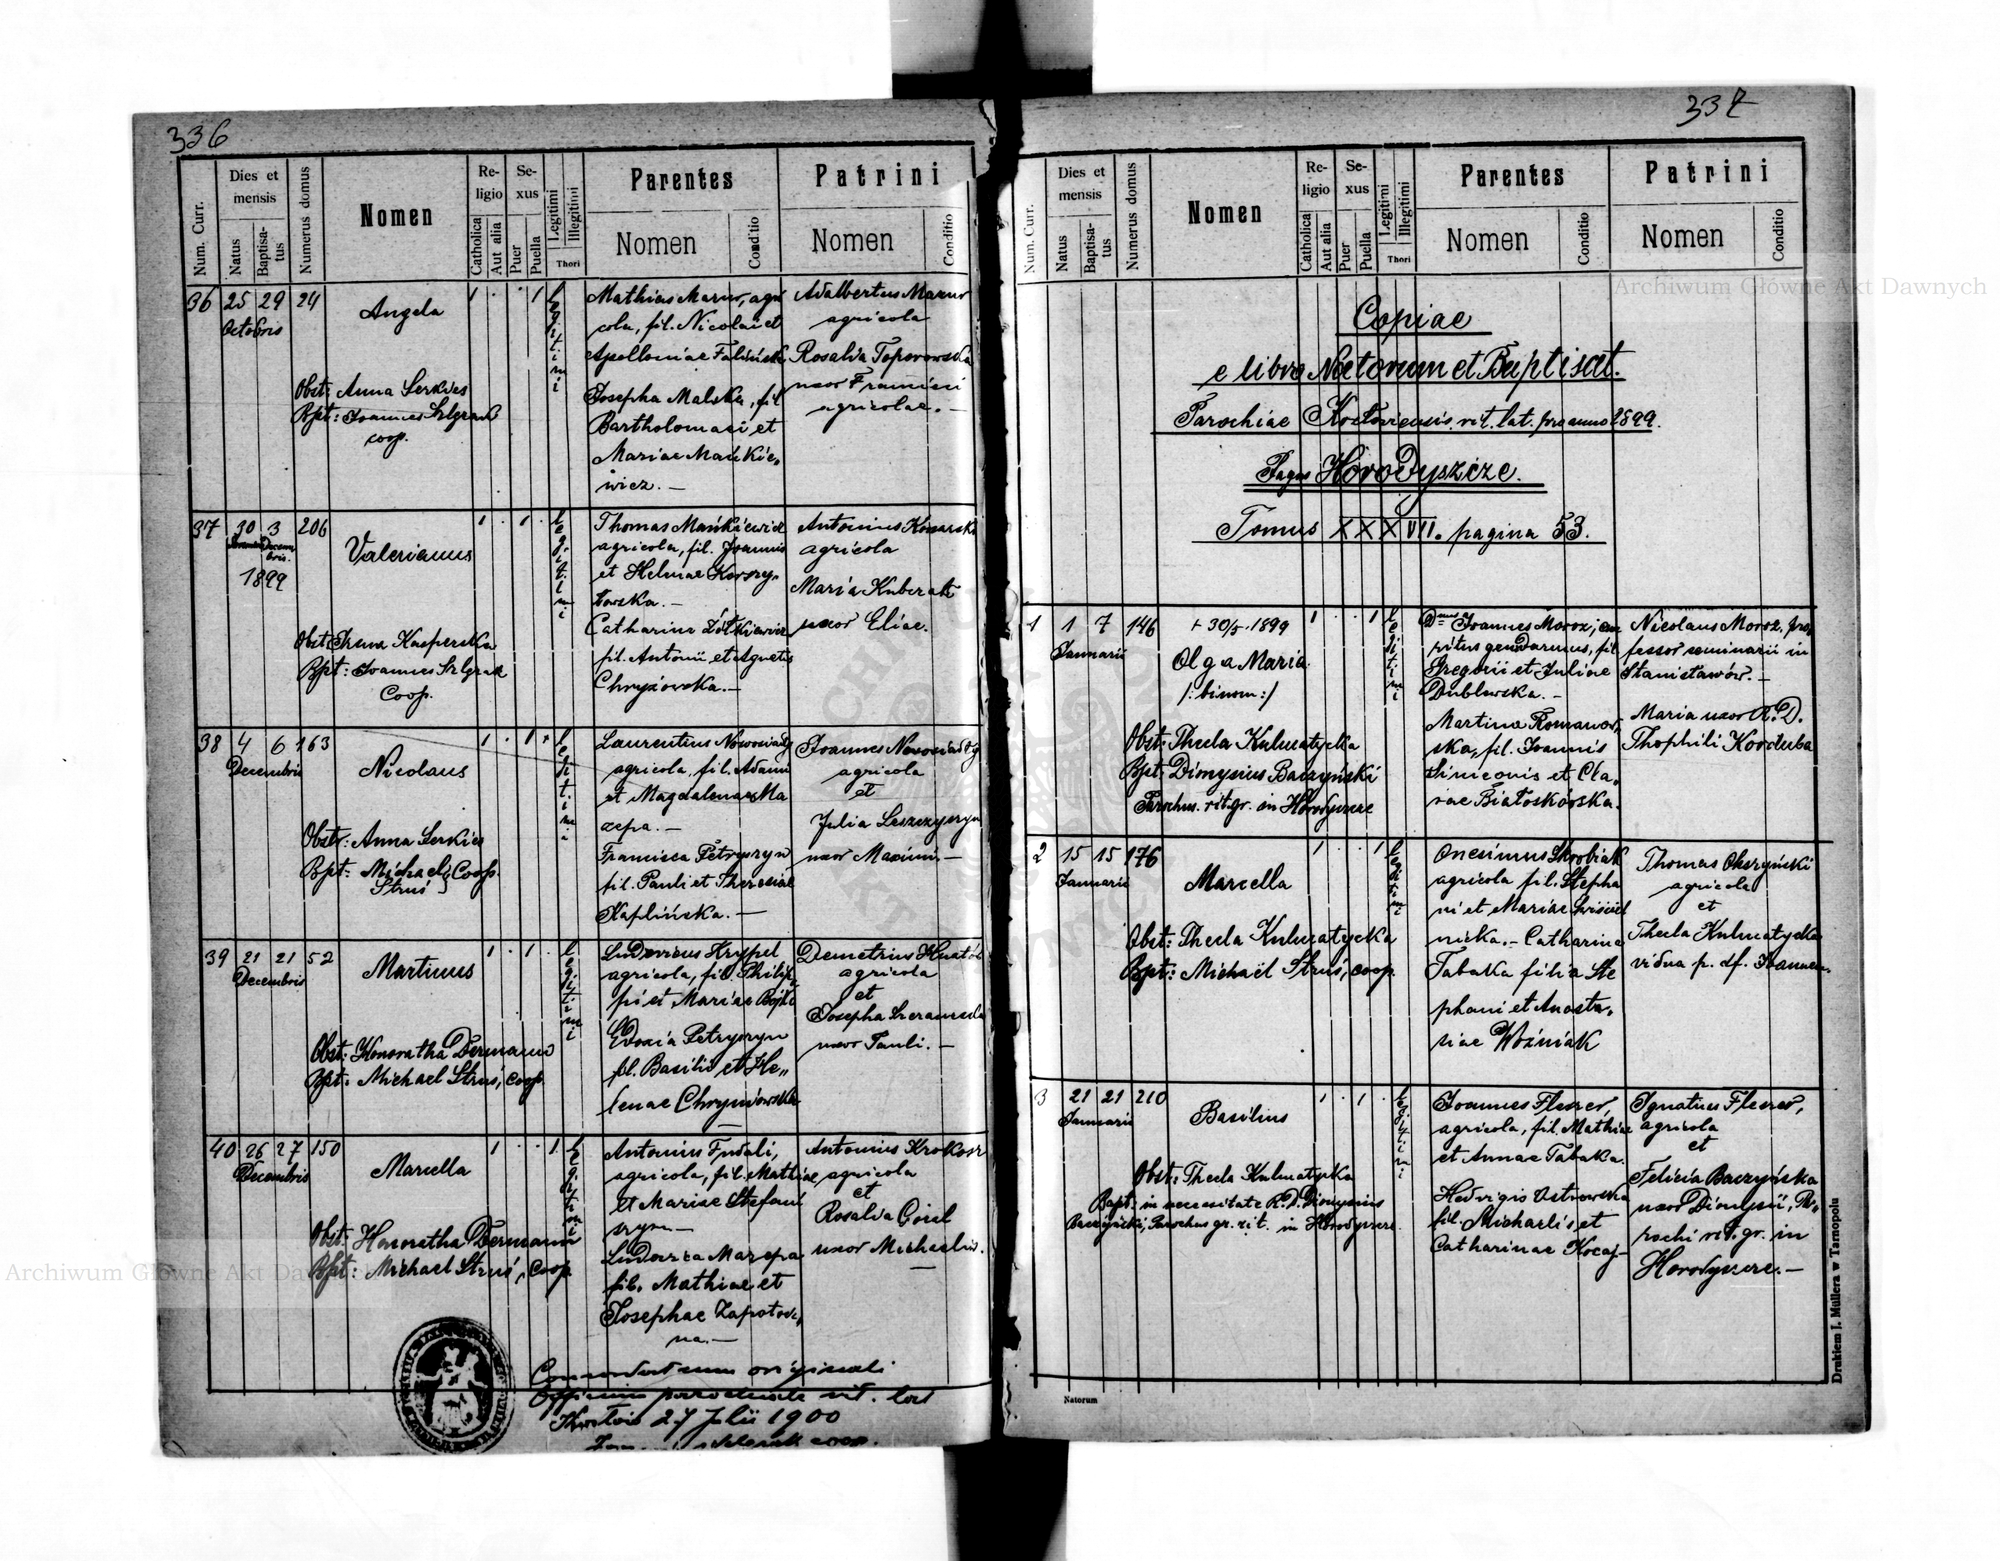 336
Num. Curr.
Dies et mensis
Natus
Baptisatus
Numerus domus
Nomen
Religio
Catholica
Aut alia
Sexus
Puer
Puella
Legitimi
Illegitimi
Thori
Parentes
Nomen
Conditio
Patrini
Nomen
Conditio
36 25 29 24
Octobris
Angela
Obst: Anna Serkies
Bpt: Joannes Szlgrak
coop.
Legitimi
Mathias Mazur, agri
cola, fil. Nicolai et
Apolloniae Falińska
Josepha Malska, fil
Bartholomaei et
Mariae Mańkie„
wicz. —
Adalbertus Mazur
agricola
Rosalia Toporowska
uxor Francisci
agricolae. —
37 30 3 206
Decem
bris.
1899
Valerianus
Kasperska
Bpt: Joannes Szlgrak
Coop.
Legitimi
Thomas Mańkiewicz
agricola, fil. Joannis
et Helenae Korszy„
łowska. —
Catharina Żółkiewicz
fil. Antonii et Agnetis
Chryżowska. —
Antonius Kosarski
agricola
Maria Kuberak
uxor Eliae.
38 4 6 163
Decembris
Nicolaus
Obst: Anna Serkies
Bpt: Michael Coop.
Struś
Legitimi
Laurentius Nowosiadły
agricola, fil. Adami
et Magdalenae Ma
zepa. —
Francisca Petryszyn
fil. Pauli et Theresiae
Kaplińska. —
Joannes Nowosiadły
agricola
et
Julia Leszczyszyn
uxor Maximi —
39 21 21 52
Decembris
Martinus
Obst: Honoratha Dermann
Bpt: Michael Struś, coop.
Legitimi
Ludovicus Krypel
agricola, fil. Philip
pi et Mariae Bojko
Eudoxia Petryszyn
fil. Basilii et He„
lenae Chrymowska
—
Demetrius Hnatów
agricola
et
Josepha
uxor Pauli. —
40 26 27 150
Decembris
Marcella
Obst: Honoratha Dermann
Bpt: Michael Struś, coop.
Legitimi
Antonius Fydali,
agricola, fil. Mathiae
et Mariae Stefani
szyn —
Ludovica Mazepa
fil. Mathiae et
Josephae Zapotocz„
na. —
Antonius Krokosz
agricola
et
Rosalia Góral
uxor Michaelis.
—
Concordat cum originali
Officium parochiale rit. lat
Kozłów 27 Julii 1900
coop.
337
Num. Curr.
Dies et mensis
Natus
Baptisatus
Numerus domus
Nomen
Religio
Catholica
Aut alia
Sexus
Puer
Puella
Legitimi
Illegitimi
Thori
Parentes
Nomen
Conditio
Patrini
Nomen
Conditio
Copiae
e libro Natorum et Baptisat.
Parochiae Kozłoviensis rit. lat. pro anno 1899.
Pagus Horodyszcze.
Tomus XXXVII. pagina 53.
1 1 7 146
Januarii
+ 30/5. 1899
Olga Maria
/: binom :/
Obst: Thecla Kulmatycka
Bpt: Dionysius Baczyński
Parochus. rit. gr. in Horodyszcze
Legitimi
Joannes Moroz, em
ritus gendarmus, fil
Gregorii et Juliae
Dublewska. —
Martina Romanow„
ska, fil. Joannis
Hiniconis et Cla„
rae Białoskórska.
Nicolaus Moroz, pro„
fessor seminarii in
Stanisławów. —
Maria uxor R. D.
Thophili Korduba
2 15 15 176
Januarii
Marcella
Obst: Thecla Kulmatycka
Bpt: Michaël Struś, coop.
Legitimi
Onesimus Skrobiak
agricola fil. Stepha
ni et Mariae
nicka. — Catharina
Tabaka filia Ste
phani et Anasta„
siae Woźniak
Thomas Olszyński
agricola
et
Thecla Kulmatycka
vidua p. df. Joannem.
3 21 21 210
Januarii
Basilius
Obst: Thecla Kulmatycka
Bapt: in necessitate R. D. Dionysius
Baczyński, Parochus gr. rit. in Horodyszcze.
Legitimi
Joannes Flexer,
agricola, fil. Mathiae
et Annae Tabaka.
Hedvigis Ostrowska
fil. Michaelis et
Catharinae Kocaj —
Ignatius Flexer,
agricola
et
Felicia Baczyńska
uxor Dionysii, Pa„
rochi rit. gr. in
Horodyszcze. —
Natorum
Drukiem J. Müllera w Tarnopolu
Archiwum Główne Akt Dawnych
Archiwum Główne Akt Dawnych